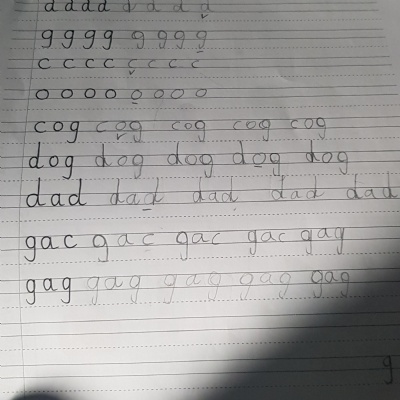 d d d d d d d d
g g g g g g g g
c c c c c c c c
o o o o o o o o
cog cog cog cog cog
dog dog dog dog dog
dad dad dad dad dad
gac gac gac gac gag
gag gag gag gag gag
g